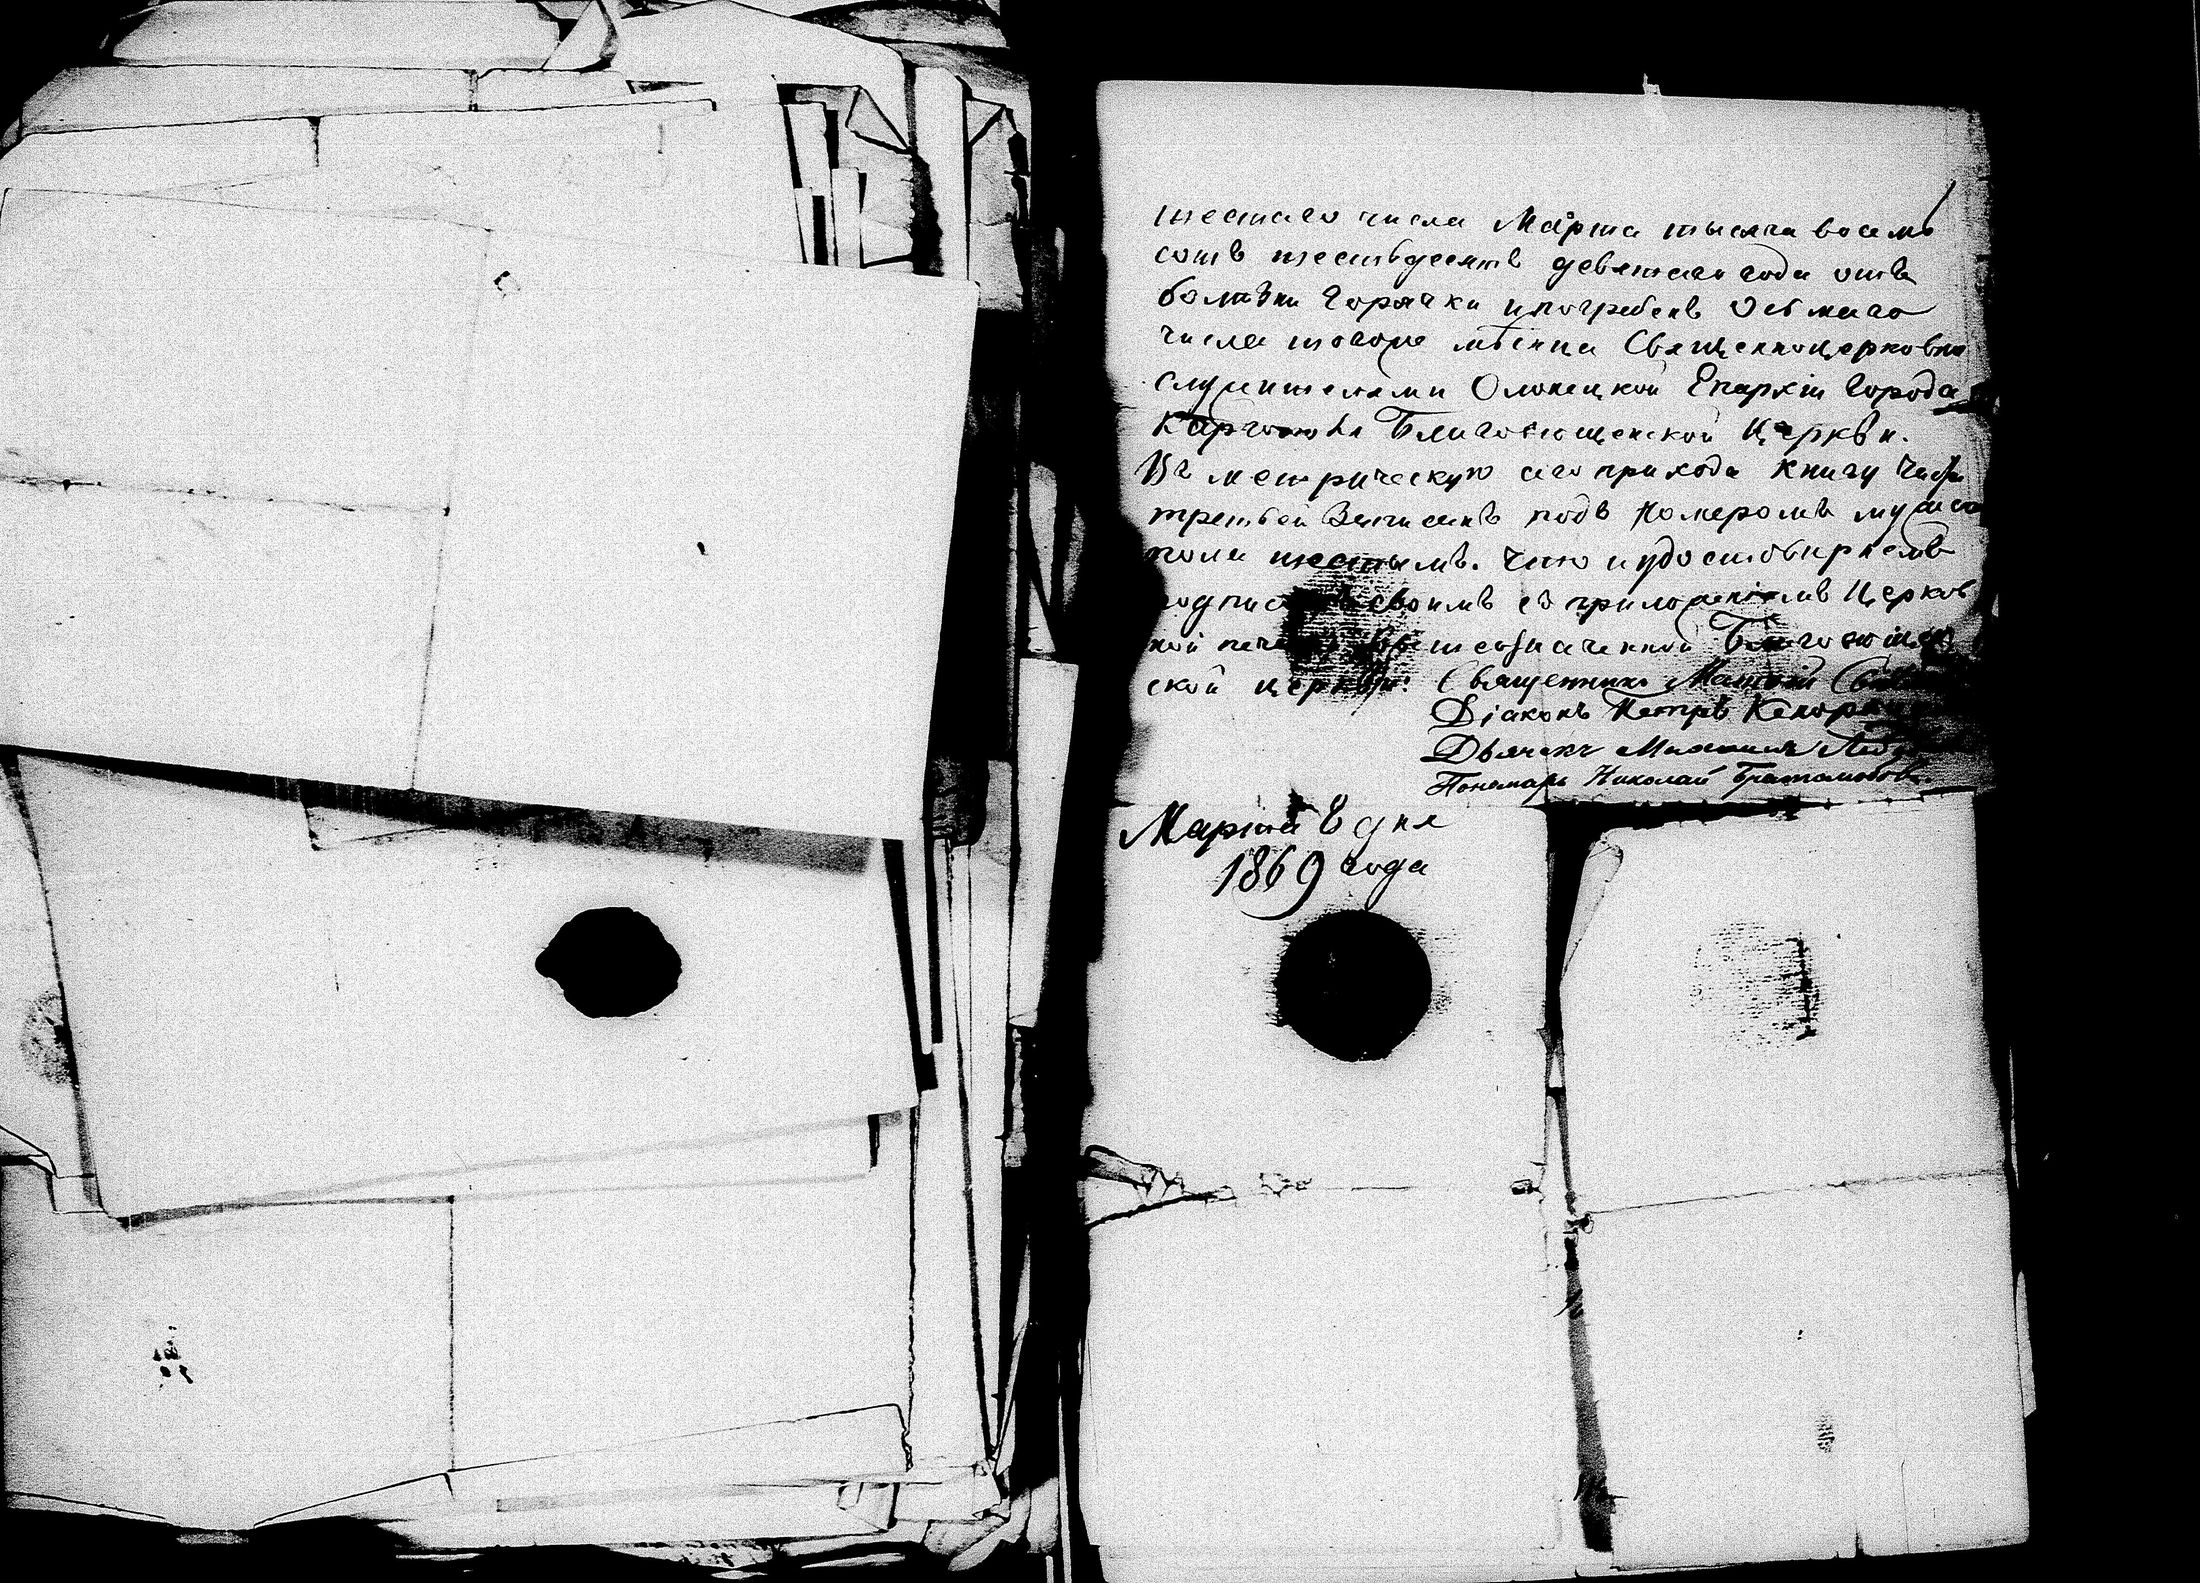 шестаго числа Марта тысяча восемь
сотъ шестьдесятъ девятаго года отъ
болѣзни Горячки и погребенъ Осьмаго
числа тогоже мѣсяца Священноцерковно
служителями Олонецкой Епархіи Города
Каргополя Благовѣщенской Церкви.
Въ метрическую сего прихода книгу части
третьей Записанъ подъ Номеромъ мужеска
пола шестымъ. Что и удостовѣряемъ
подписомъ своимъ съ приложеніемъ Церков
ной печати вышеозначенной Благовѣщен
ской церкви: Священникъ
Діаконъ Петръ
Дьячекъ Михаилъ
Пономарь Николай Братолюбовъ.
Марта 8 дня
1869 года